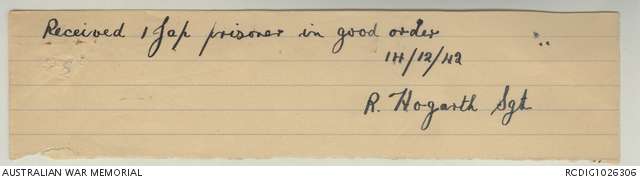 Received 1 Jap prisoner in good order
14/12/42
R. Hogarth Sgt
AUSTRALIAN WAR MEMORIAL
RCDIG1026306